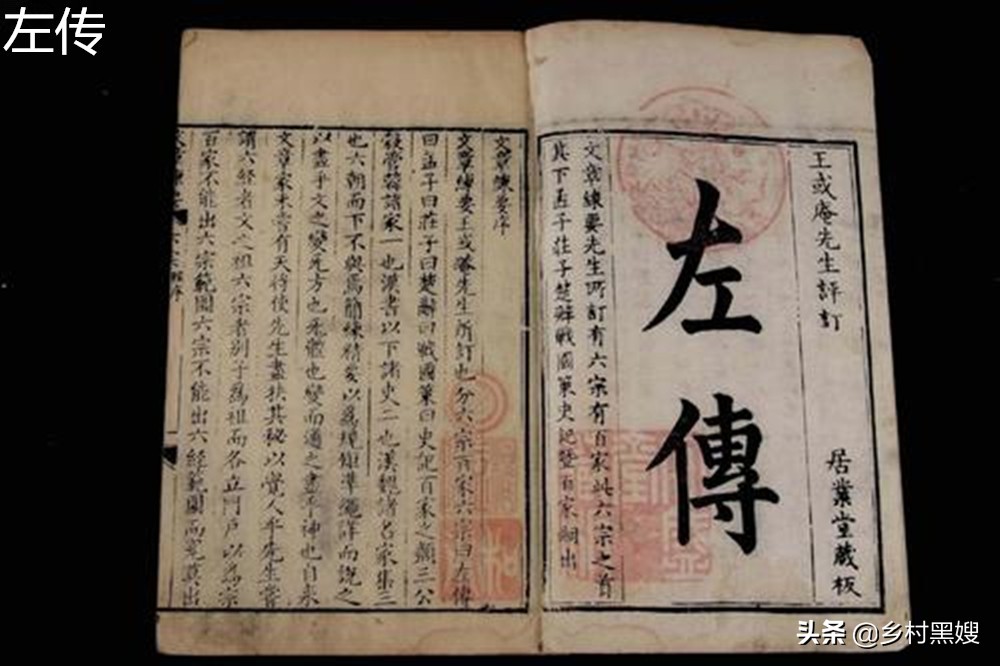 左传
王或庵先生評訂
左傳
居業堂蔵板
文章練要先生所訂有六宗有百家此六宗之首
其下孟子莊子楚辭戰國策史記暨百家嗣出
文章練要序
文章練要王或菴先生所訂也分六宗百家六宗曰左傳
曰孟子曰莊子曰楚辭曰戰國策曰史記百家之類三公
穀管韓諸家一也漢書以下諸史二也漢魏諸名家集三
也六朝而下不與焉簡練精要以爲規矩準繩詳而說之
以盡乎文之變先方也先體也變而通之盡乎神也自來
文章家未嘗有天將使先生盡扶其秘以覺人乎先生嘗
謂六經者文之祖六宗者别子爲祖而各立門戶以爲宗
百家不能出六宗範圍六宗不能出六經範圍而究莫出
头条 @乡村黑嫂